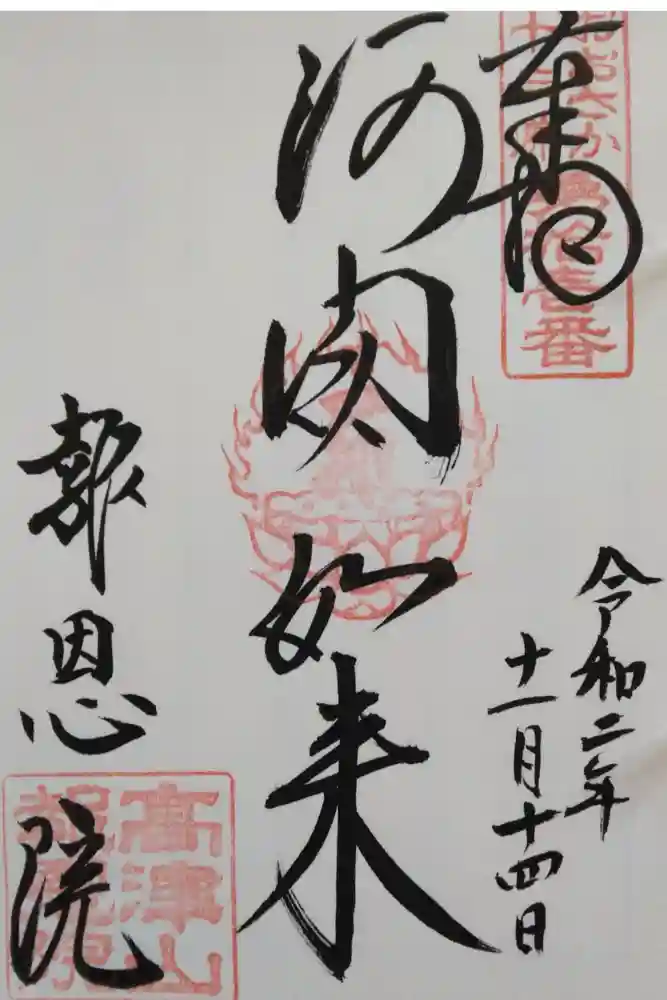 奉拝
第拾壹番
令和二年
十一月十四日
阿閦如来
報恩院
高津山
報恩院